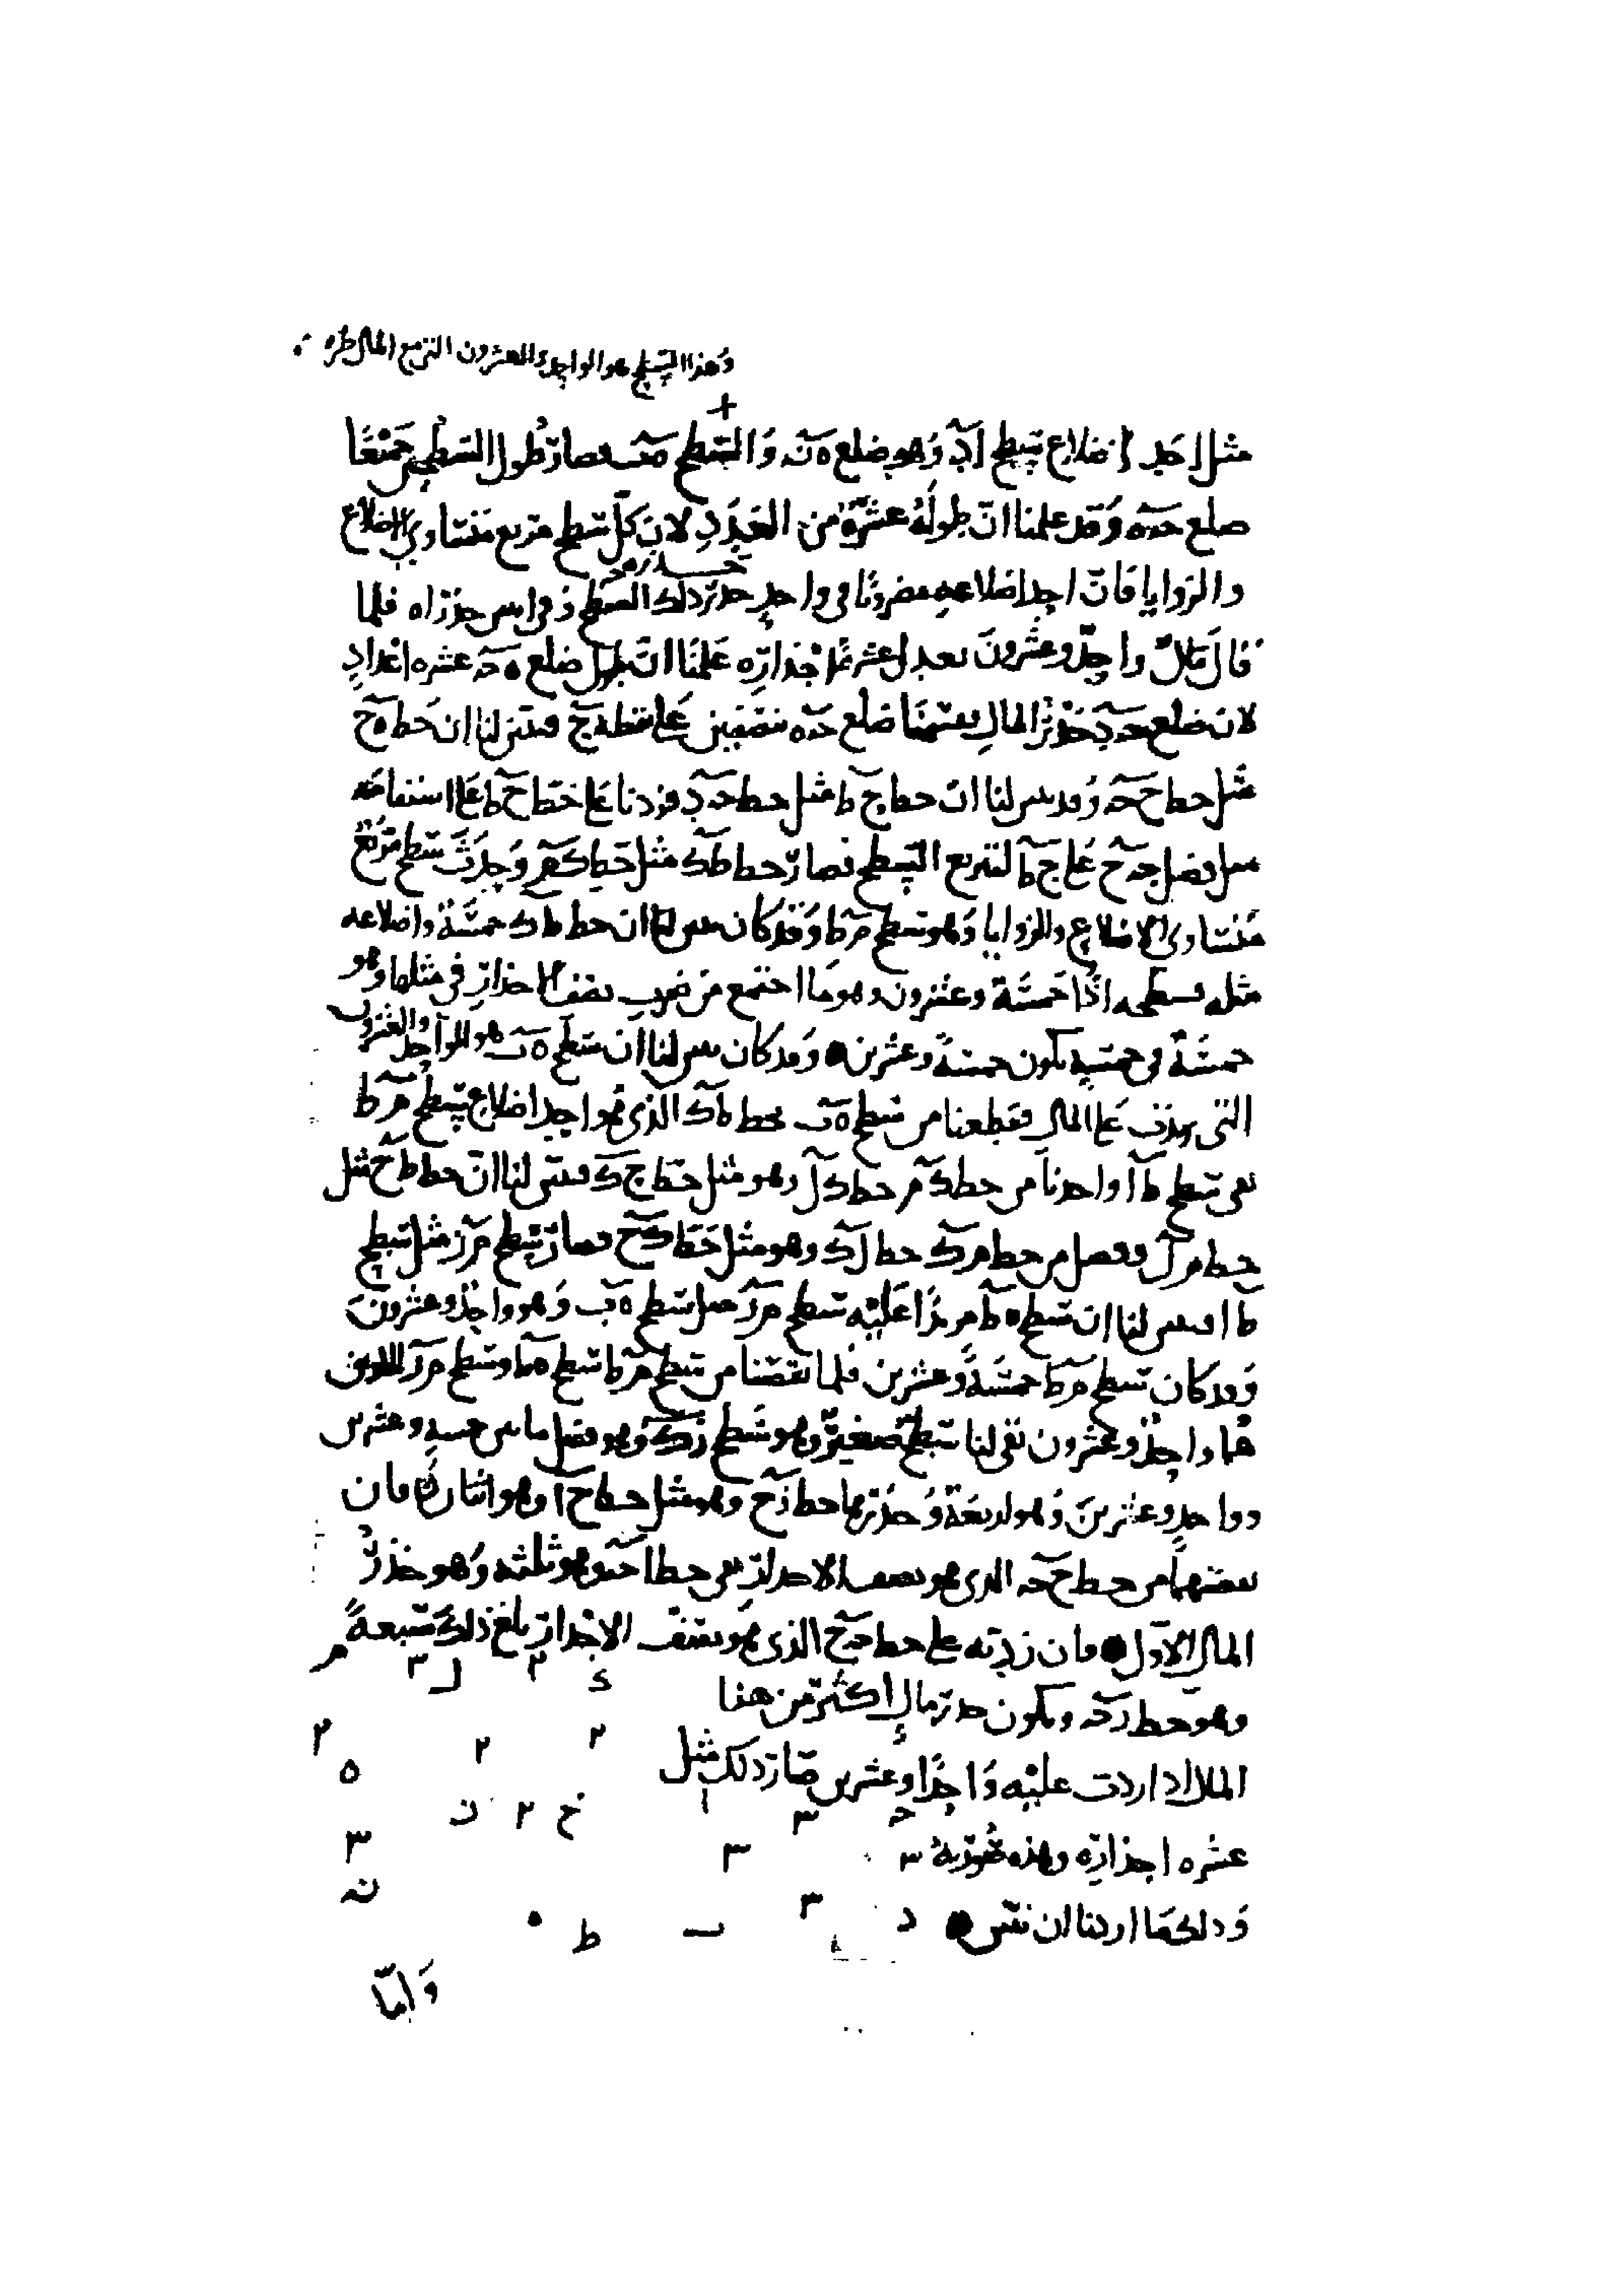 وهذا السطح هو الواحد والعشرون التي مع المال طره
مثل احد اضلاع سطح اد وهو ضلع ه ن والسطح ه ب فصار طول السطحين جميعا
ضلع حه وقد علمنا ان طوله عشرة من العدد لان كل سطح مربع متساوي الاضلاع
والزوايا فان احد اضلاعه مضروبا في واحد جذر ذلك السطح وفي اثنين جذراه فلما
قال مال واحد وعشرون يعدل عشرة اجذاره علمنا ان طول ضلع ه حه عشره اعداد
لان ضلع حه د جذر المال فقسمنا ضلع حه ه نصفين على نقطة ح فتبين لنا ان خط ه ح
مثل خط ح حه وقد تبين لنا ان خط ح ط مثل خط حه د فزدنا على خط ح ط على استقامته
مثل فضل حه ح على ح ط لتربع السطح فصار خط ط ك مثل خط ك م وحدث سطح مربع
متساوي الاضلاع والزوايا وهو سطح م ط وقد كان تبين لنا ان خط ط ك خمسة واضلاعه
مثله فسطحه اذا خمسة وعشرون وهو ما اجتمع من ضرب نصف الاجذار في مثلها وهو
خمسة في خمسة يكون خمسة وعشرين وقد كان تبين لنا ان سطح ه ب هو الواحد والعشرون
التي زيدت على المال فقطعنا من سطح ه ب بخط ط ك الذي هو احد اضلاع سطح م ط
بقي سطح ط ا واخذنا من خط ك م خط ك ل وهو مثل خط ح ك فتبين لنا ان خط ط ح مثل
خط م ل وفضل من خط م ك خط ل ك وهو مثل خط ك ح فصار سطح م ر مثل سطح
ط ا فتبين لنا ان سطح ه ط مزيدا عليه سطح م ر مثل سطح ه ب وهو واحد وعشرون
وقد كان سطح م ط خمسة وعشرين فلما نقصنا من سطح م ط سطح ه ط وسطح م ر اللذين
هما واحد وعشرون بقي لنا سطح صغير وهو سطح ر ك وهو فضل ما بين خمسة وعشرين
وواحد وعشرين وهو اربعة وجذرها خط ر ح وهو مثل خط ح ا وهو اثنان فان
نقصتهما من خط ح حه الذي هو نصف الاجذار بقي خط ا حه وهو ثلثه وهو جذر
المال الاول فان زدته على خط حه ح الذي هو نصف الاجذار بلغ ذلك سبعة
وهو خط ر حه ويكون جذر مال اكثر من هذا
المال اذا زدت عليه واحدا وعشرين صار ذلك مثل
عشره اجذاره وهذه صورته
وذلك ما اردنا ان نبين
واما